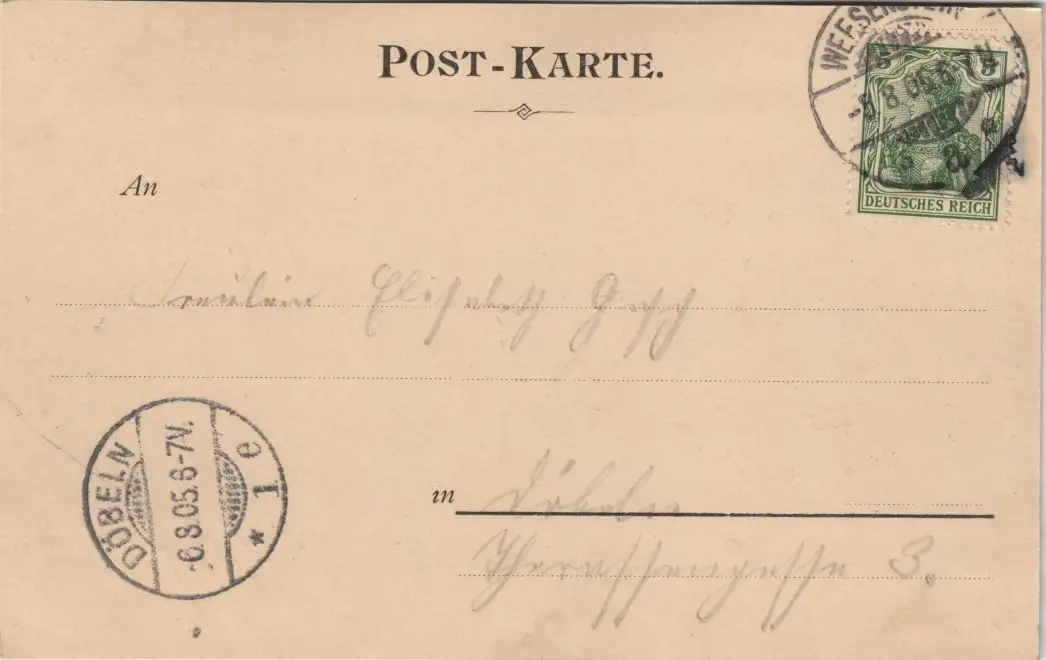 POST-KARTE.
WEESENSTEIN
8.05.6-7N
5 5
DEUTSCHES REICH
An
Fräulein Elisabeth
DÖBELN
-6.8.05.6-7V.
* 1 c
in Döbeln
3.